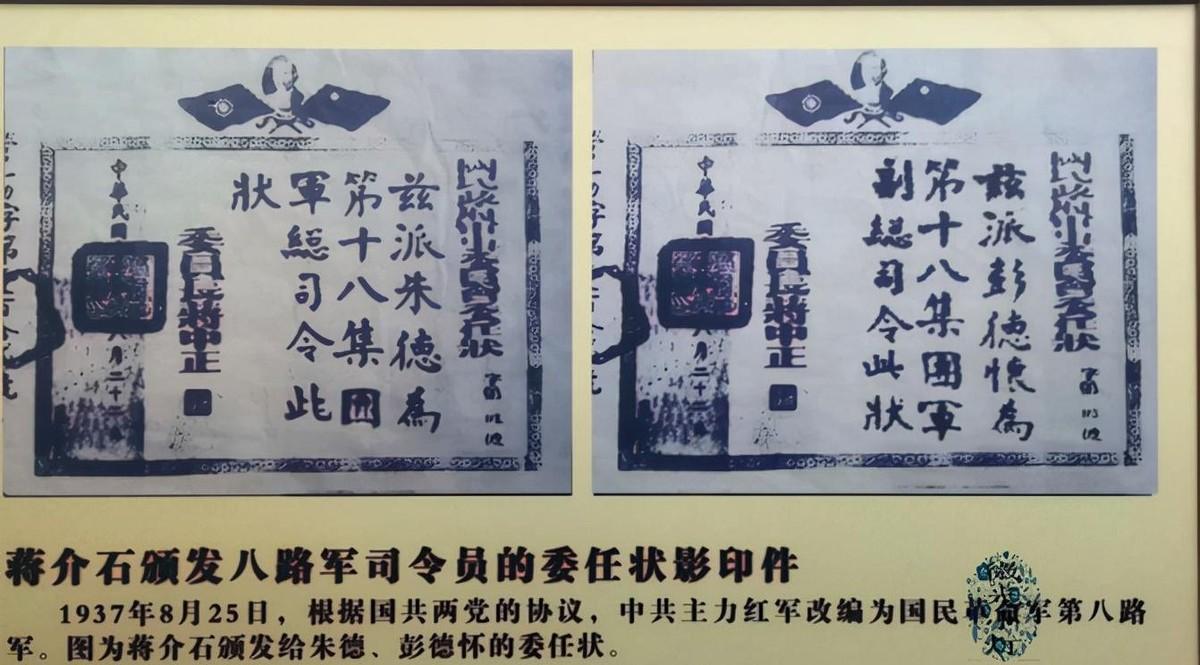 國民政府軍事委員會委任狀
茲派朱德為
第十八集團
軍總司令此
狀
委員長蔣中正
中華民國
八月二十二
茲派彭德懷為
第十八集團軍
副總司令此狀
委員長蔣中正
中華民國
八月二十二
蒋介石颁发八路军司令员的委任状影印件
1937年8月25日，根据国共两党的协议，中共主力红军改编为国民革命军第八路
军。图为蒋介石颁发给朱德、彭德怀的委任状。